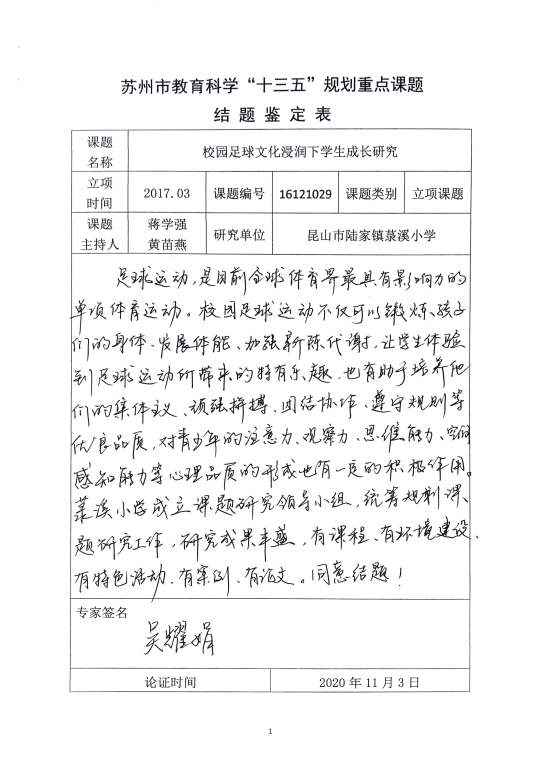 苏州市教育科学“十三五”规划重点课题
结 题 鉴 定 表
课题名称 校园足球文化浸润下学生成长研究
立项时间 2017.03 课题编号 16121029 课题类别 立项课题
课题主持人 蒋学强 黄苗燕 研究单位 昆山市陆家镇菉溪小学
足球运动,是目前全球体育界最具有影响力的
单项体育运动。校园足球运动不仅可以锻炼孩子
们的身体、发展体能、加强新陈代谢,让学生体验
到足球运动所带来的特有乐趣,也有助于培养他
们的集体主义、顽强拼搏、团结协作、遵守规则等
优良品质,对青少年的注意力、观察力、思维能力、空间
感知能力等心理品质的形成也有一定的积极作用。
菉溪小学成立课题研究领导小组,统筹规划课
题研究工作,研究成果丰盛,有课程、有环境建设、
有特色活动、有案例、有论文。同意结题!
专家签名
吴耀娟
论证时间 2020 年 11 月 3 日
1